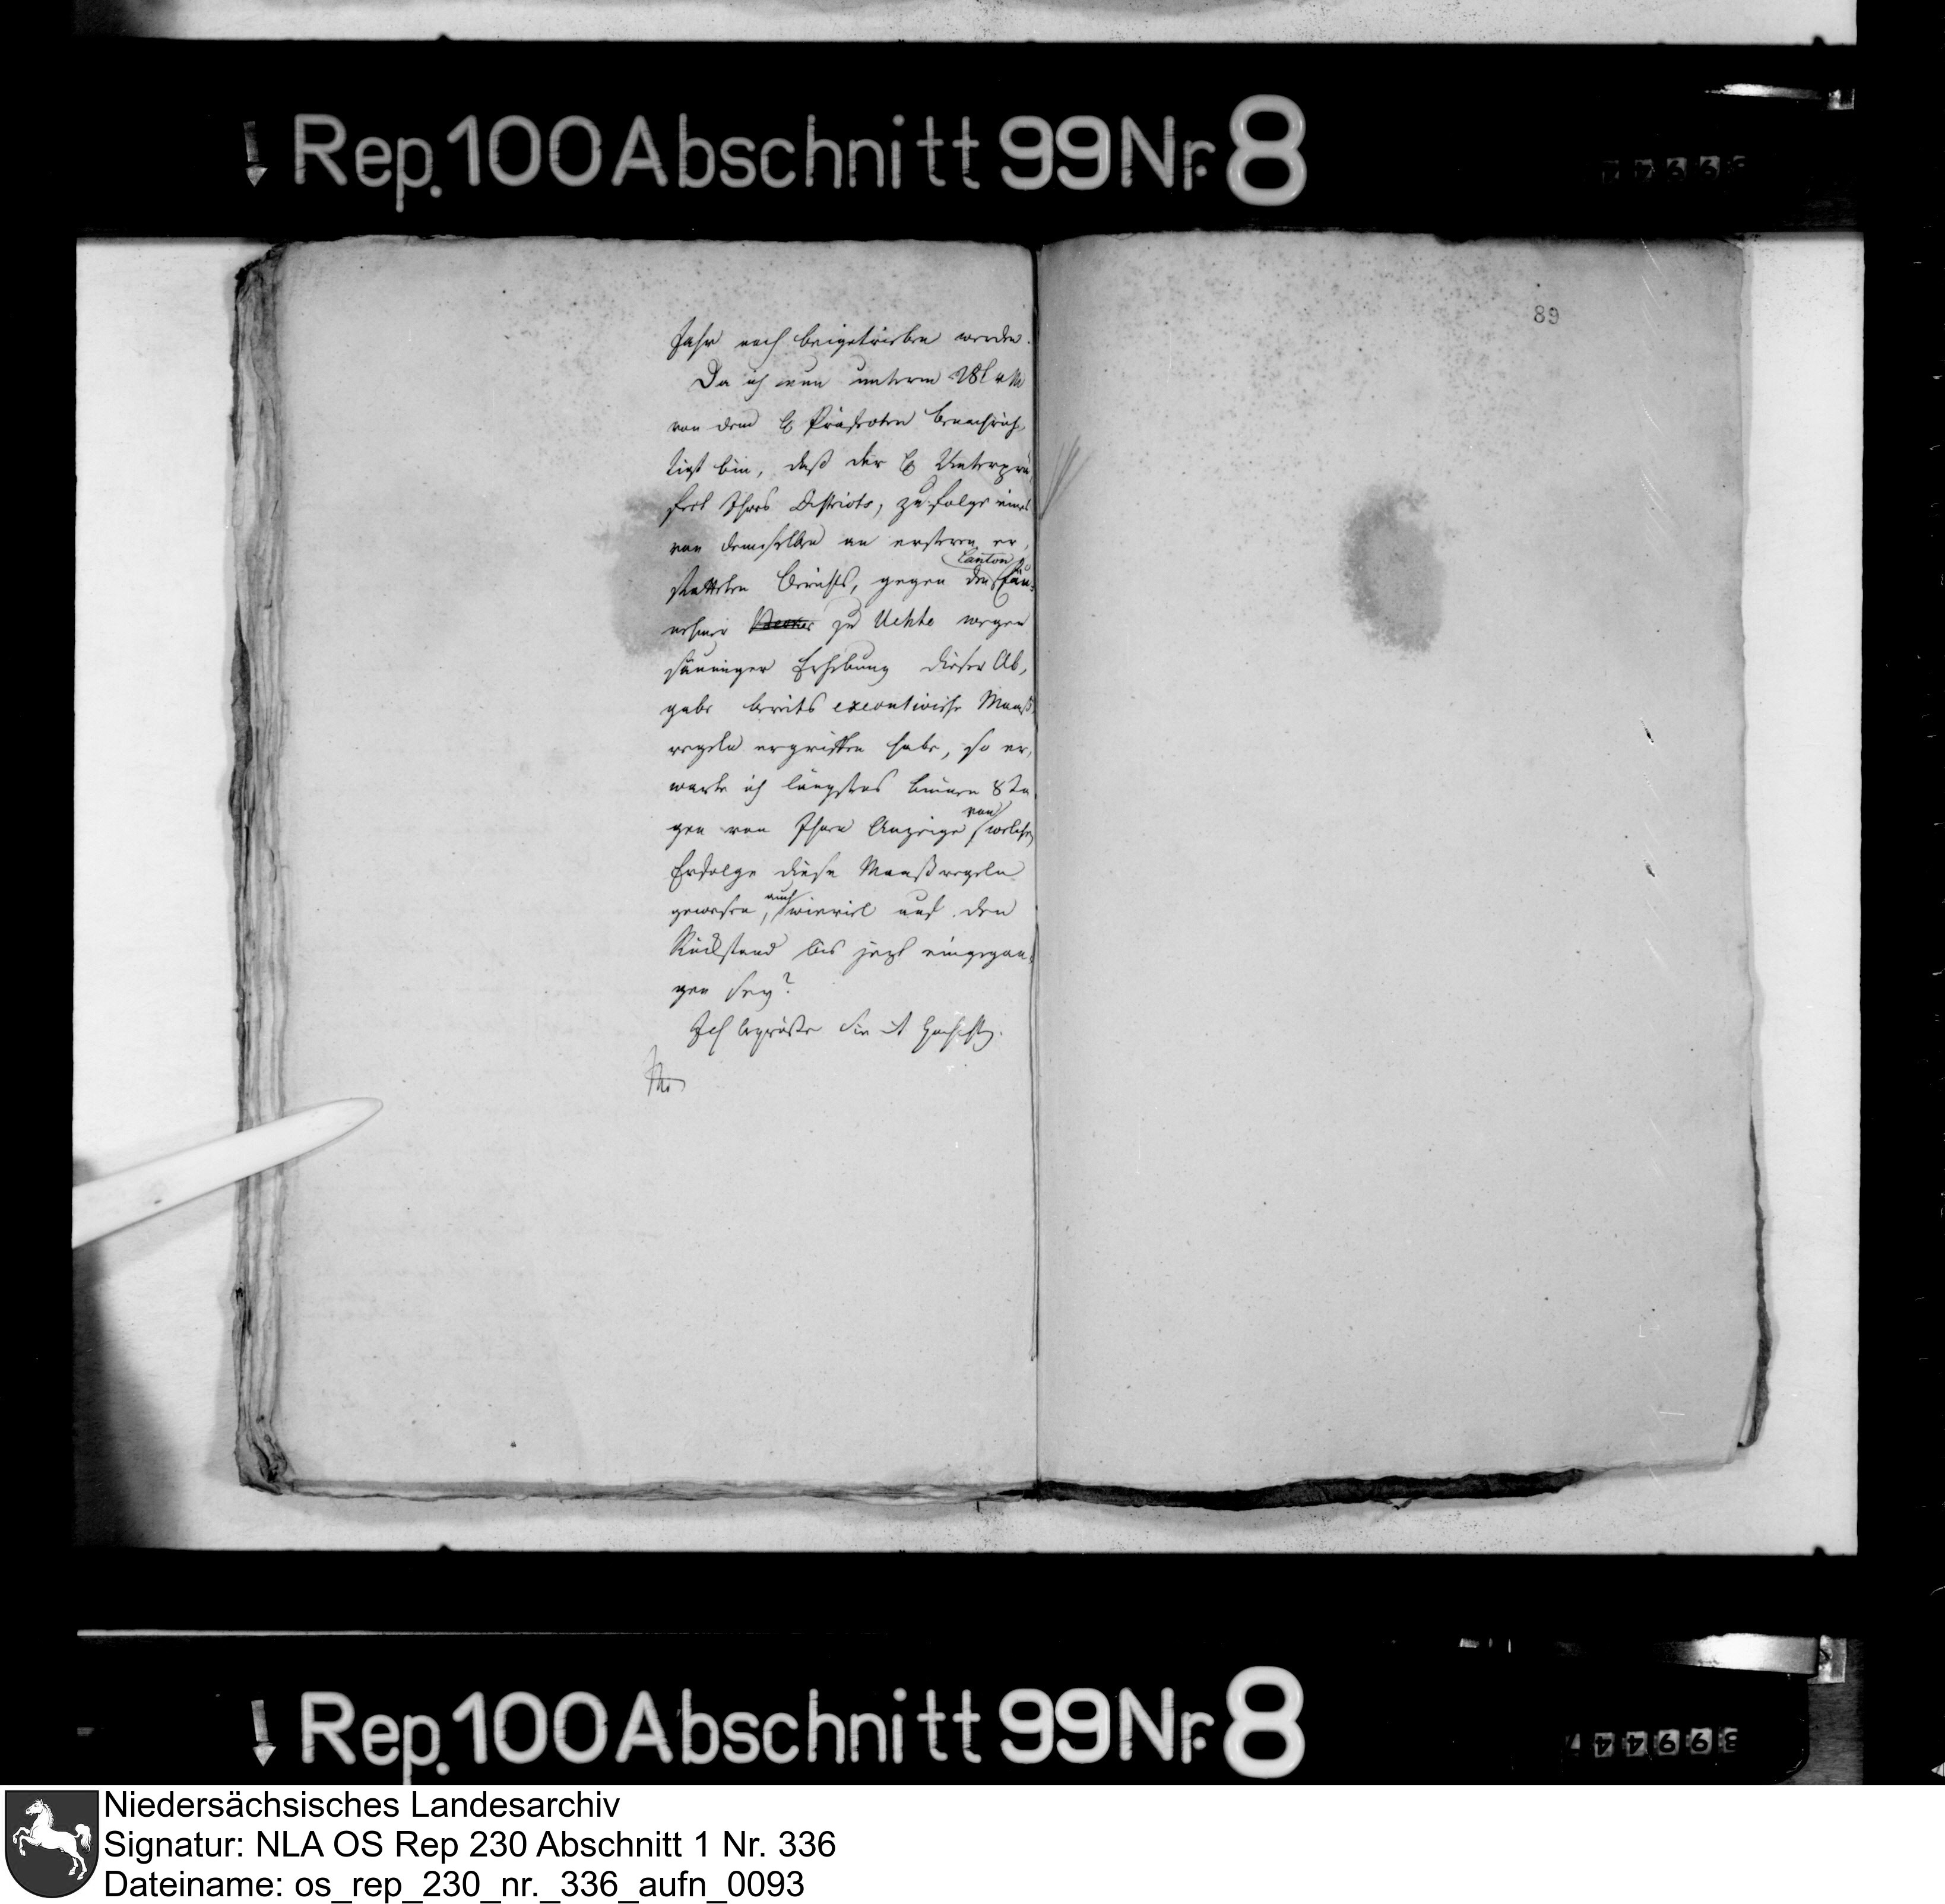 Rep. 100 Abschnitt 99 Nr. 8
89
Jahr noch beigetrieben werden.
Da ich nun unterm
von dem H Präfecten benachrich,
tigt bin, daß der H Unterprä,
fect Ihres Districts, zu folge eines
von demselben an ersteren er,
Canton
statteten Berichts, gegen den Ein,
nehmer zu Uchte wegen
säumiger Erhebung dieser Ab,
gabe bereits executivische Maaß,
regeln ergriffen habe, so er,
warte ich längstens binnen 8 Ta
von
gen von Ihnen Anzeige, welchem
Erfolge diese Maaßregeln
auch
gewesen, wieviel auf den
Rückstand bis jezt eingegan,
gen sey?
Ich begrüße Sie
Rep. 100 Abschnitt 99 Nr. 8
Niedersächsisches Landesarchiv
Signatur: NLA OS Rep 230 Abschnitt 1 Nr. 336
Dateiname: os_rep_230_nr._336_aufn_0093